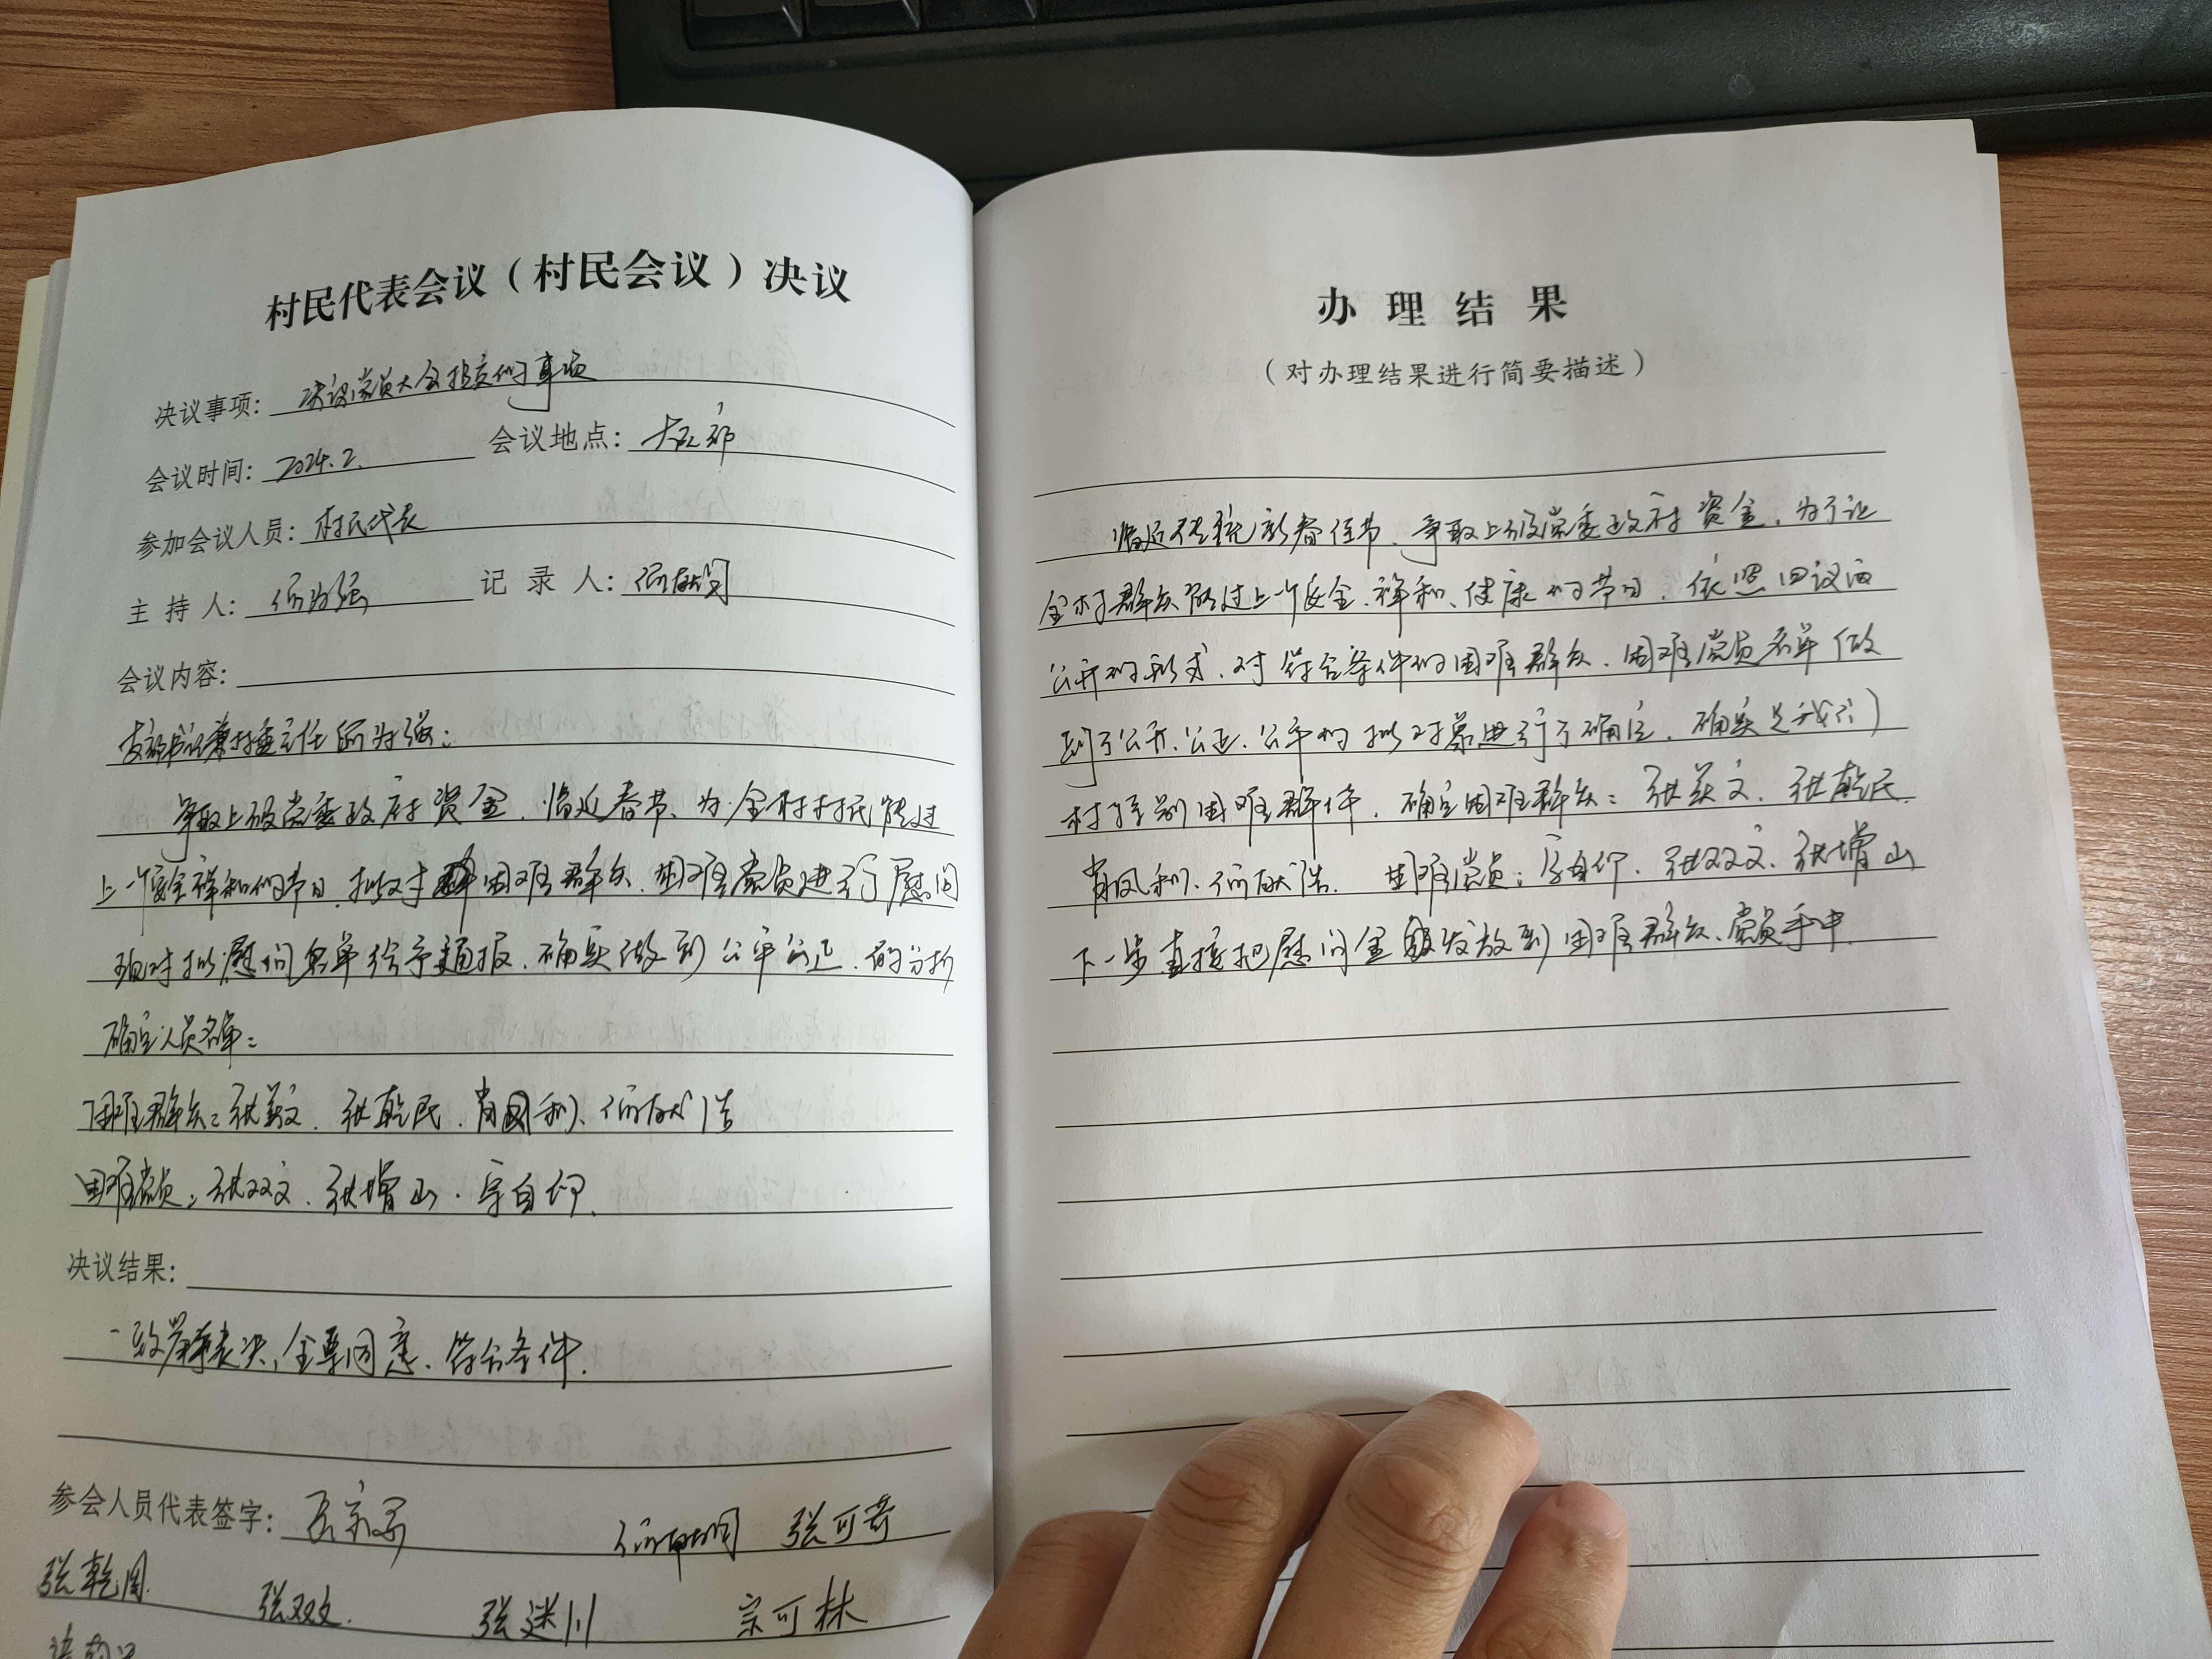 村民代表会议（村民会议）决议
决议事项：决议党员大会提交的事项
会议时间：2024.2. 会议地点：大队部
参加会议人员：村民代表
主 持 人：何为强 记 录 人：何献
会议内容：
支部书记兼村委主任何为强：
争取上级党委政府资金，临近春节、为全村村民能过
上一个安全祥和的节日，拟对困难群众、困难党员进行慰问
现对拟慰问名单给予通报，确实做到公平公正，的分析
确定人员名单：
困难群众：张美文、张乾民、肖凤利、何献浩
困难党员：张双文、张增山、宗自仰、
决议结果：
一致举手表决，全票同意、符合条件.
参会人员代表签字： 何献 张可奇
张乾周 张双文. 张迷川 宗可林
办 理 结 果
（对办理结果进行简要描述）
临近传统新春佳节、争取上级党委政府资金，为了让
全村群众能过上一个安全、祥和、健康的节日，依照四议两
公开的形式，对符合条件的困难群众、困难党员名单做
到了公开、公正、公平的拟对象进行了确定，确实是我们
村特别困难群体，确定困难群众：张美文、张乾民、
肖凤利、何献浩. 困难党员：宗自仰、张双文、张增山
下一步直接把慰问金发放到困难群众、党员手中.